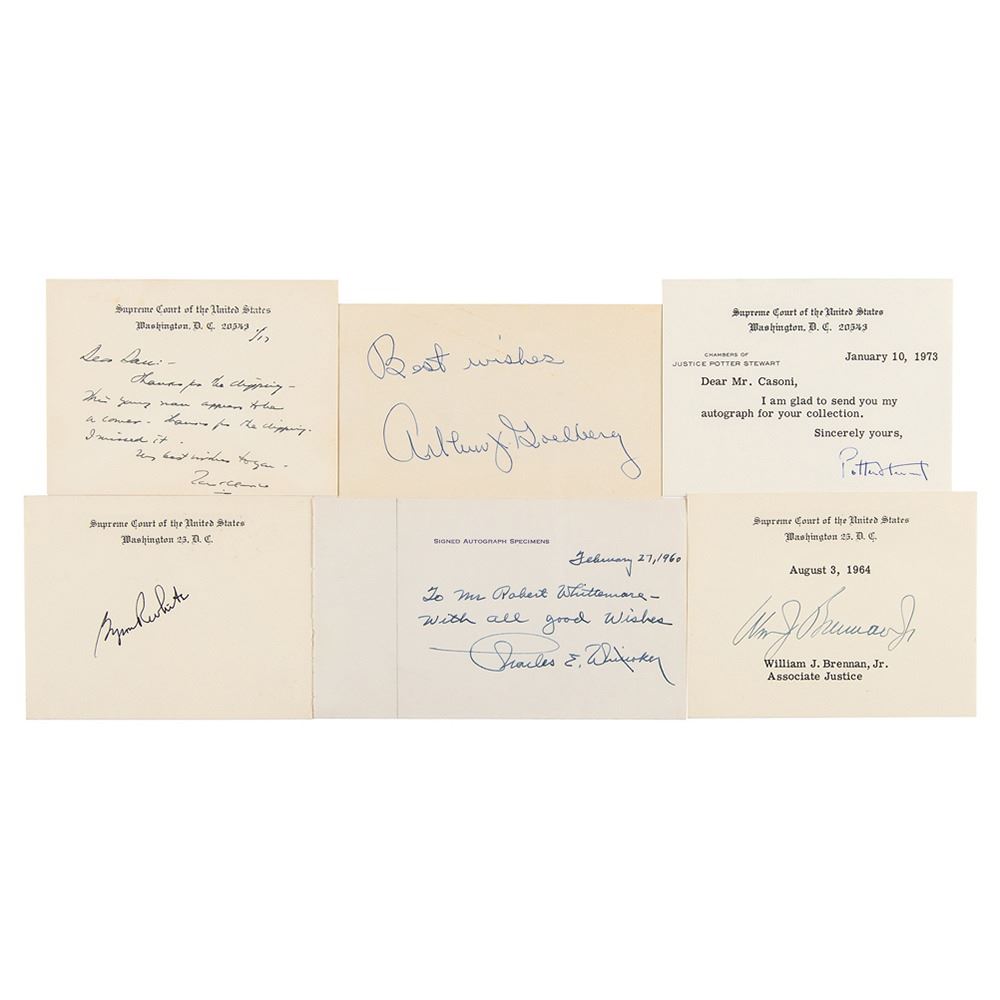 Supreme Court of the United States
Washington, D. C. 20543
1/17
Thanks for the clipping -
This young man appears to be
a comer. Thanks for the clipping.
I missed it.
My best wishes to you -
Best wishes
Arthur J. Goldberg
Supreme Court of the United States
Washington, D. C. 20543
CHAMBERS OF
JUSTICE POTTER STEWART
January 10, 1973
Dear Mr. Casoni,
I am glad to send you my
autograph for your collection.
Sincerely yours,
Potter Stewart
Supreme Court of the United States
Washington 25, D. C.
Byron R White
SIGNED AUTOGRAPH SPECIMENS
February 27, 1960
To Mr Robert Whittemore -
With all good Wishes
Charles E. Whittaker
Supreme Court of the United States
Washington 25, D. C.
August 3, 1964
Wm J. Brennan Jr
William J. Brennan, Jr.
Associate Justice